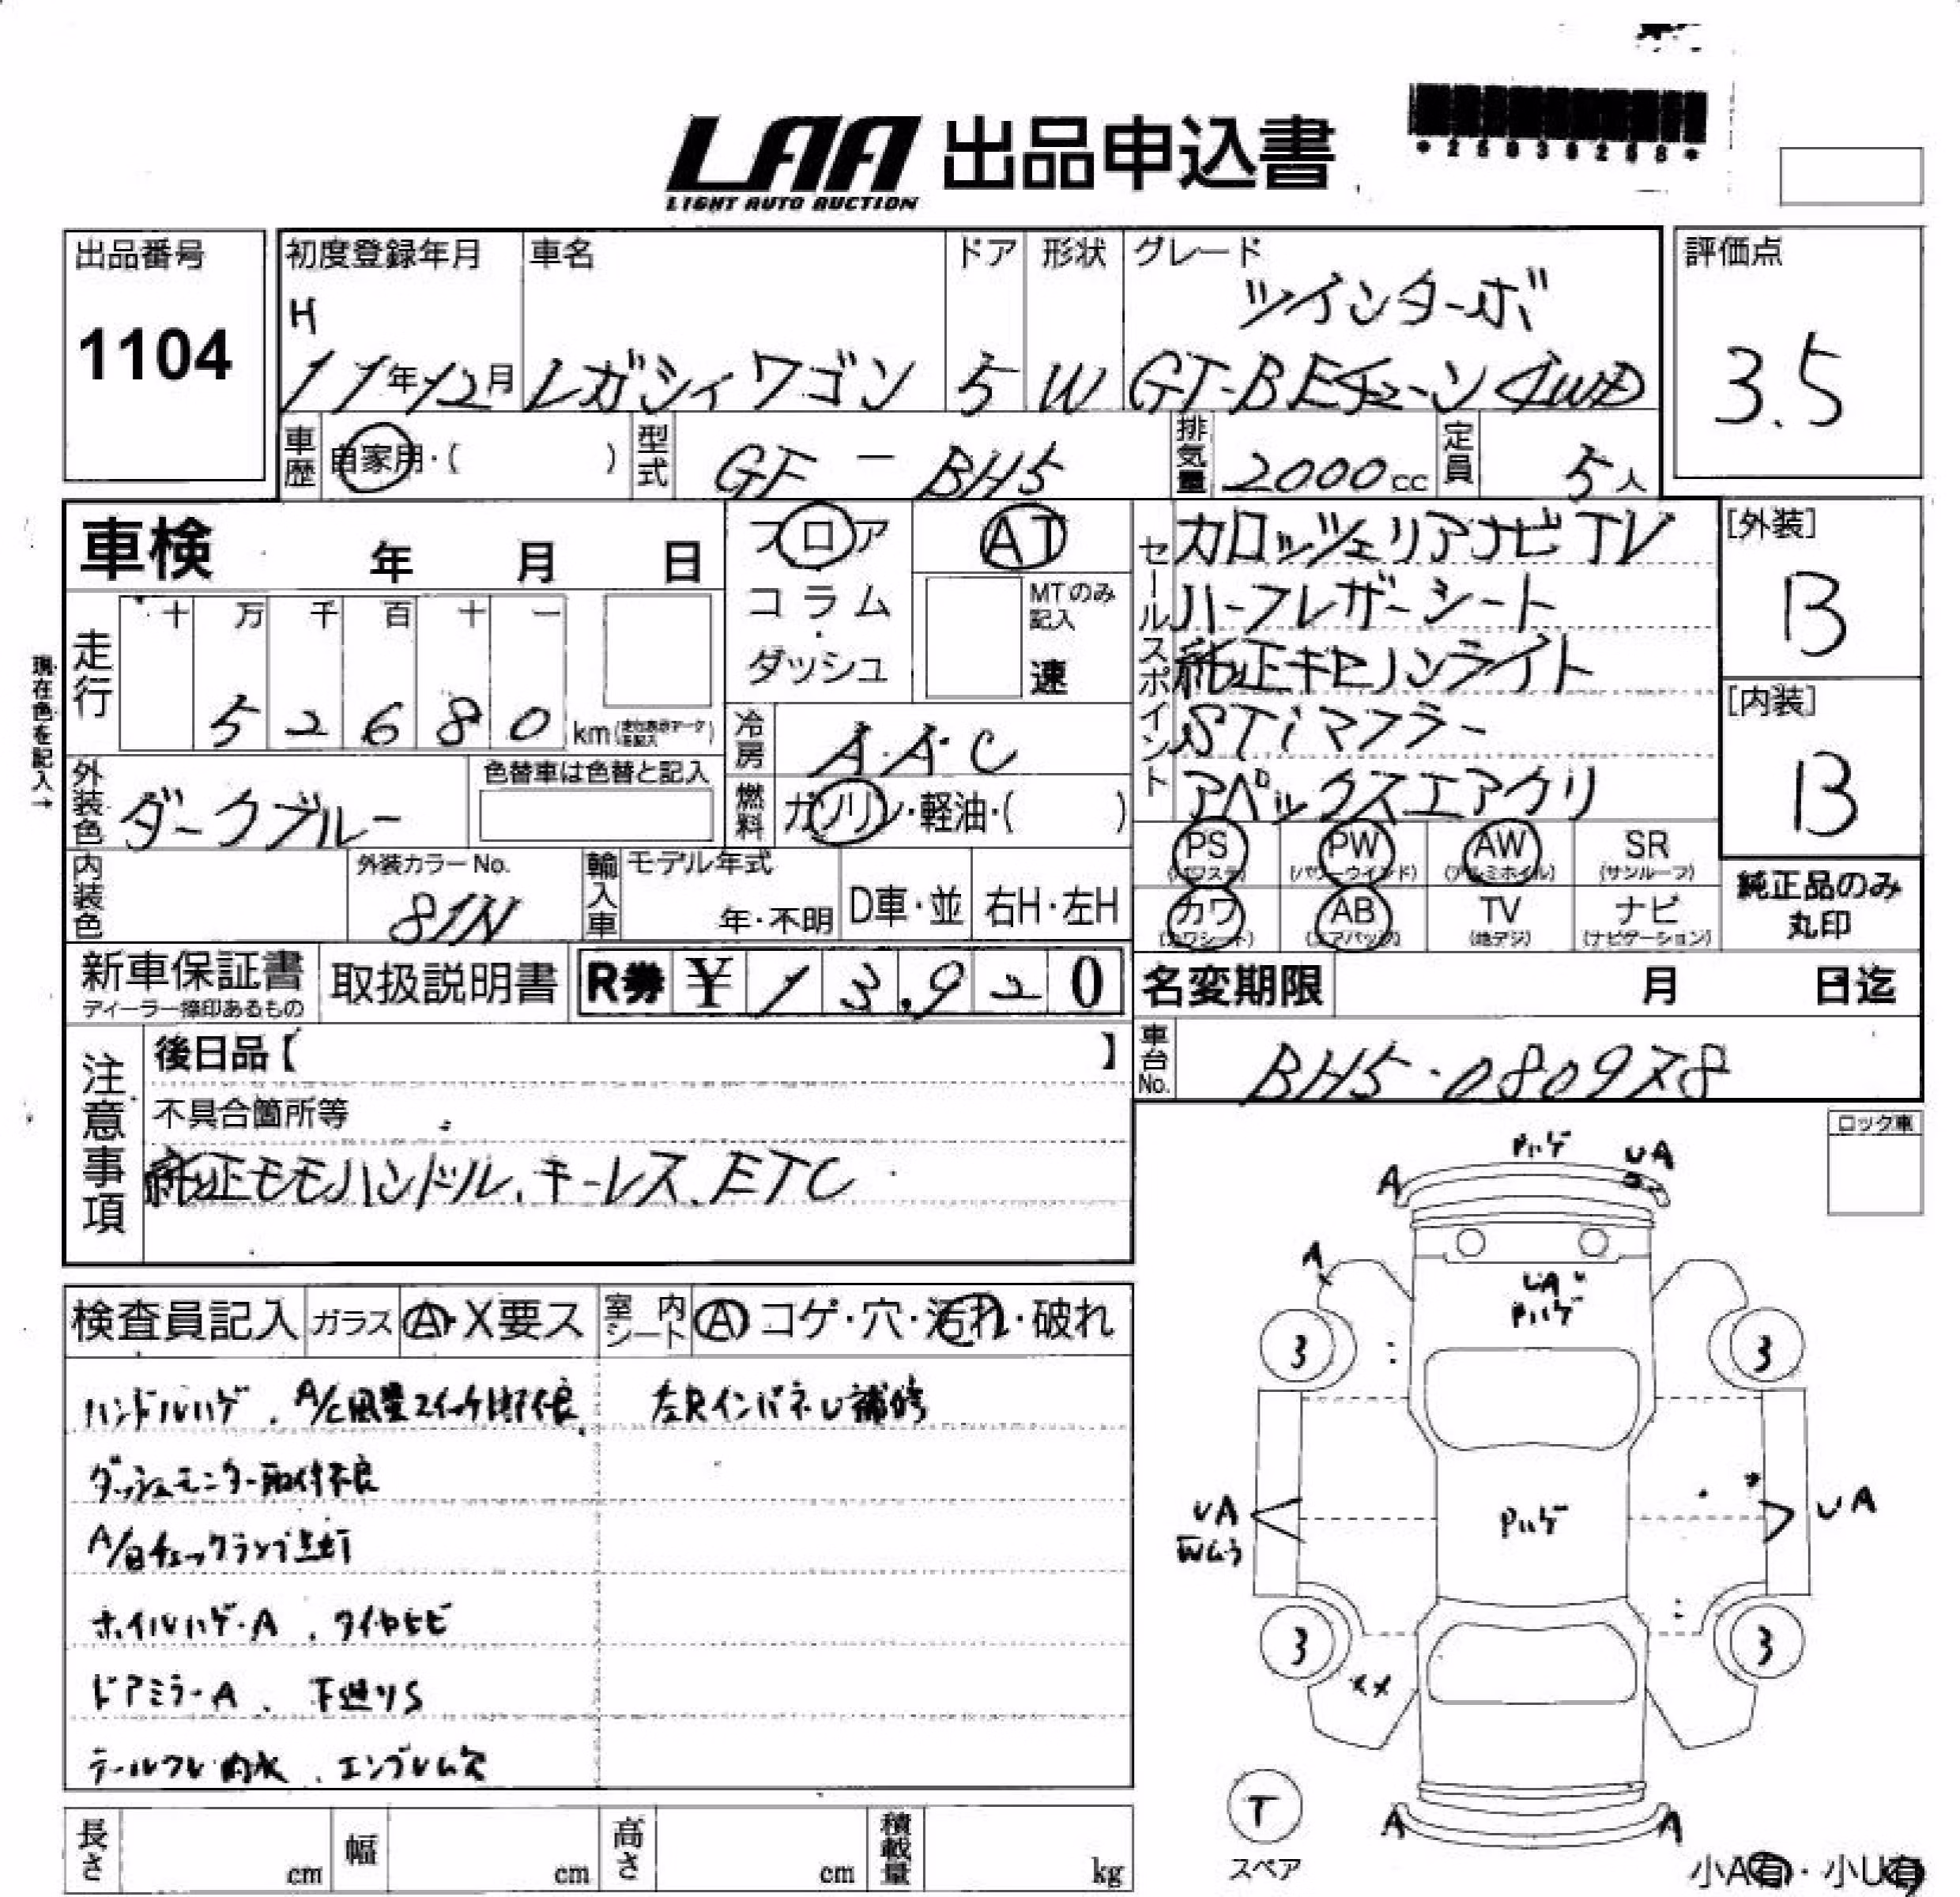 LAA 出品申込書
LIGHT AUTO AUCTION
出品番号
1104
初度登録年月
H
11年12月
車名
レガシィワゴン
ドア
5
形状
W
グレード
ツインターボ
GT-B Eチューン 4WD
評価点
3.5
車歴
自家用・( )
型式
GF － BH5
排気量
2000cc
定員
5人
車検 年 月 日
フロア
コラム
ダッシュ
AT
MTのみ
記入
速
セールスポイント
カロッツェリアナビTV
ハーフレザーシート
純正キセノンライト
STiマフラー
アペックスエアクリ
[外装]
B
[内装]
B
現在色を記入→
走行
十 万 千 百 十 一
5 2 6 8 0 km
冷房
A・A・C
燃料
ガソリン・軽油・( )
外装色
ダークブルー
色替車は色替と記入
PS PW AW SR
(パワステ) (パワーウインド) (アルミホイル) (サンルーフ)
カワ AB TV ナビ
(カワシート) (エアバッグ) (地デジ) (ナビゲーション)
純正品のみ
丸印
内装色
外装カラーNo.
81N
輸入車
モデル年式
年・不明
D車・並
右H・左H
新車保証書
ディーラー捺印あるもの
取扱説明書
R券 ¥ 13,920
名変期限 月 日迄
車台No.
BH5-080978
注意事項
後日品【 】
不具合箇所等
純正モモハンドル、キーレス、ETC
ロック車
検査員記入
ガラス
A・X要ス
室内シート
A コゲ・穴・汚れ・破れ
ハンドルハゲ、A/C風量スイッチ作不良
左Rインパネル補修
ダッシュモニター取付不良
A/Bチェックランプ点灯
ホイルハゲ・A、タイヤヒビ
ドアミラーA、下廻りS
テールクレ内水、エンブレム欠
Pハゲ
UA
A
A
UA
Pハゲ
3
3
UA
Wムラ
Pハゲ
UA
3
3
T
スペア
A
A
小A有・小U有
長さ cm
幅 cm
高さ cm
積載量 kg